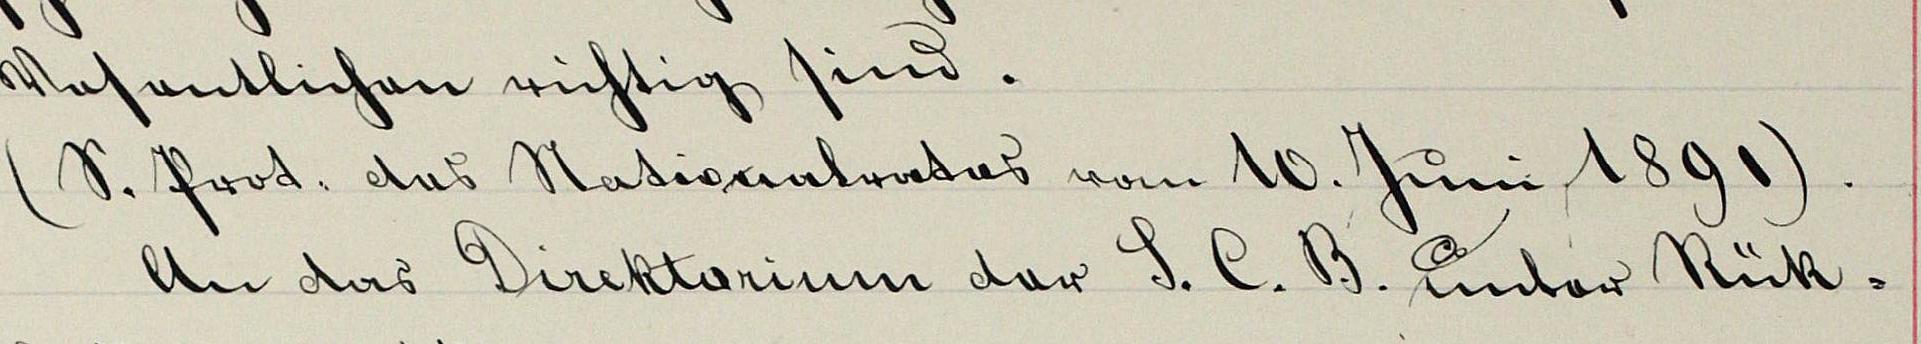 Wesentlichen richtig sind.
(S. Prot. des Nationalrates vom 10. Juni 1891).
An das Direktorium der S. C. B. unter Rük-